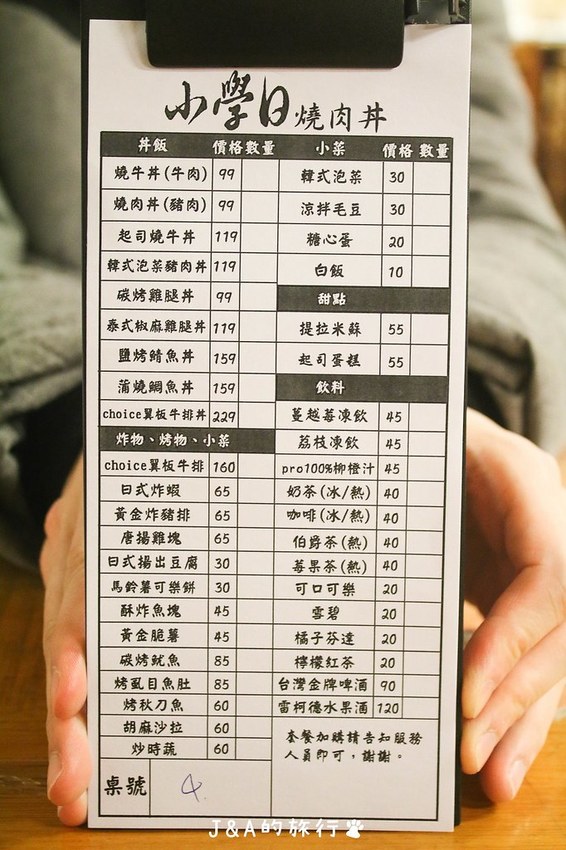 小學日燒肉丼
丼飯 價格 數量
燒牛丼(牛肉) 99
燒肉丼(豬肉) 99
起司燒牛丼 119
韓式泡菜豬肉丼 119
碳烤雞腿丼 99
泰式椒麻雞腿丼 119
鹽烤鯖魚丼 159
蒲燒鯛魚丼 159
choice翼板牛排丼 229
炸物、烤物、小菜
choice翼板牛排 160
日式炸蝦 65
黃金炸豬排 65
唐揚雞塊 65
日式揚出豆腐 30
馬鈴薯可樂餅 30
酥炸魚塊 45
黃金脆薯 45
碳烤魷魚 85
烤虱目魚肚 85
烤秋刀魚 60
胡麻沙拉 60
炒時蔬 60
桌號 4.
小菜 價格 數量
韓式泡菜 30
涼拌毛豆 30
糖心蛋 20
白飯 10
甜點
提拉米蘇 55
起司蛋糕 55
飲料
蔓越莓凍飲 45
荔枝凍飲 45
pro100%柳橙汁 45
奶茶(冰/熱) 40
咖啡(冰/熱) 40
伯爵茶(熱) 40
莓果茶(熱) 40
可口可樂 20
雪碧 20
橘子芬達 20
檸檬紅茶 20
台灣金牌啤酒 90
雷柯德水果酒 120
套餐加購請告知服務
人員即可,謝謝。
J&A的旅行